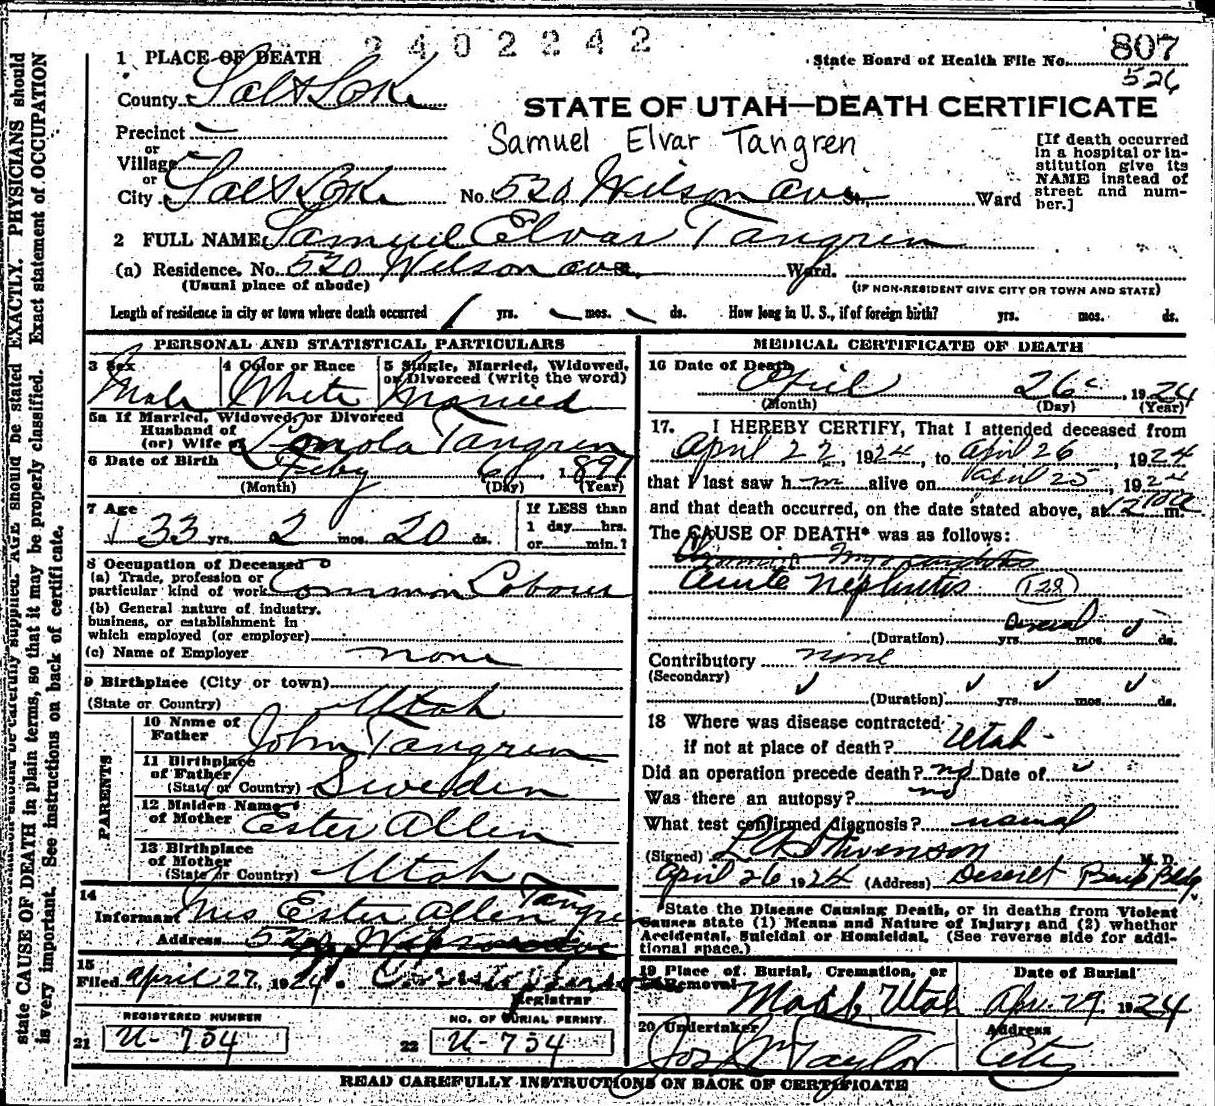 2402242
1 PLACE OF DEATH
State Board of Health File No. 807
526
County Salt Lake
STATE OF UTAH—DEATH CERTIFICATE
Precinct
Samuel Elvar Tangren
or
Village
or
City Salt Lake No. 520 Wilson ave St. Ward
[If death occurred
in a hospital or in-
stitution give its
NAME instead of
street and num-
ber.]
2 FULL NAME Samuel Elvar Tangren
(a) Residence. No. 520 Wilson ave St. Ward.
(Usual place of abode) (IF NON-RESIDENT GIVE CITY OR TOWN AND STATE)
Length of residence in city or town where death occurred 1 yrs. mos. ds. How long in U. S., if of foreign birth? yrs. mos. ds.
PERSONAL AND STATISTICAL PARTICULARS
3 Sex 4 Color or Race 5 Single, Married, Widowed,
or Divorced (write the word)
Male White Married
5a If Married, Widowed, or Divorced
Husband of
(or) Wife of Tangren
6 Date of Birth Feby 6 1891
(Month) (Day) (Year)
7 Age If LESS than
33 yrs. 2 mos. 20 ds. 1 day hrs.
or min.?
8 Occupation of Deceased
(a) Trade, profession or
particular kind of work Common Labour
(b) General nature of industry,
business, or establishment in
which employed (or employer)
(c) Name of Employer none
9 Birthplace (City or town)
(State or Country) Utah
PARENTS
10 Name of
Father John Tangren
11 Birthplace
of Father
(State or Country) Sweden
12 Maiden Name
of Mother Ester Allen
13 Birthplace
of Mother
(State or Country) Utah
14
Informant Mrs Ester Allen Tangren
Address 520
15
Filed April 27, 1924.
Registrar
REGISTERED NUMBER NO. OF BURIAL PERMIT
21 U-734 22 U-734
MEDICAL CERTIFICATE OF DEATH
16 Date of Death
April 26 1924
(Month) (Day) (Year)
17. I HEREBY CERTIFY, That I attended deceased from
April 22, 1924, to April 26, 1924
that I last saw h m alive on April 25, 1924
and that death occurred, on the date stated above, at 12 m.
The CAUSE OF DEATH* was as follows:
Acute Nephritis 128
(Duration) yrs. mos. ds.
Contributory none
(Secondary)
(Duration) yrs. mos. ds.
18 Where was disease contracted
if not at place of death? Utah
Did an operation precede death? no Date of
Was there an autopsy? no
What test confirmed diagnosis? usual
(Signed) Stevenson M. D.
April 26 1924 (Address) Deseret Bank Bldg
*State the Disease Causing Death, or in deaths from Violent
Causes state (1) Means and Nature of Injury; and (2) whether
Accidental, Suicidal or Homicidal. (See reverse side for addi-
tional space.)
19 Place of Burial, Cremation, or
Removal Date of Burial
Moab, Utah Apr. 29 1924
20 Undertaker Address
Jos Wm Taylor City
READ CAREFULLY INSTRUCTIONS ON BACK OF CERTIFICATE
AGE should be stated EXACTLY. PHYSICIANS should
state CAUSE OF DEATH in plain terms, so that it may be properly classified. Exact statement of OCCUPATION
is very important. See instructions on back of certificate.